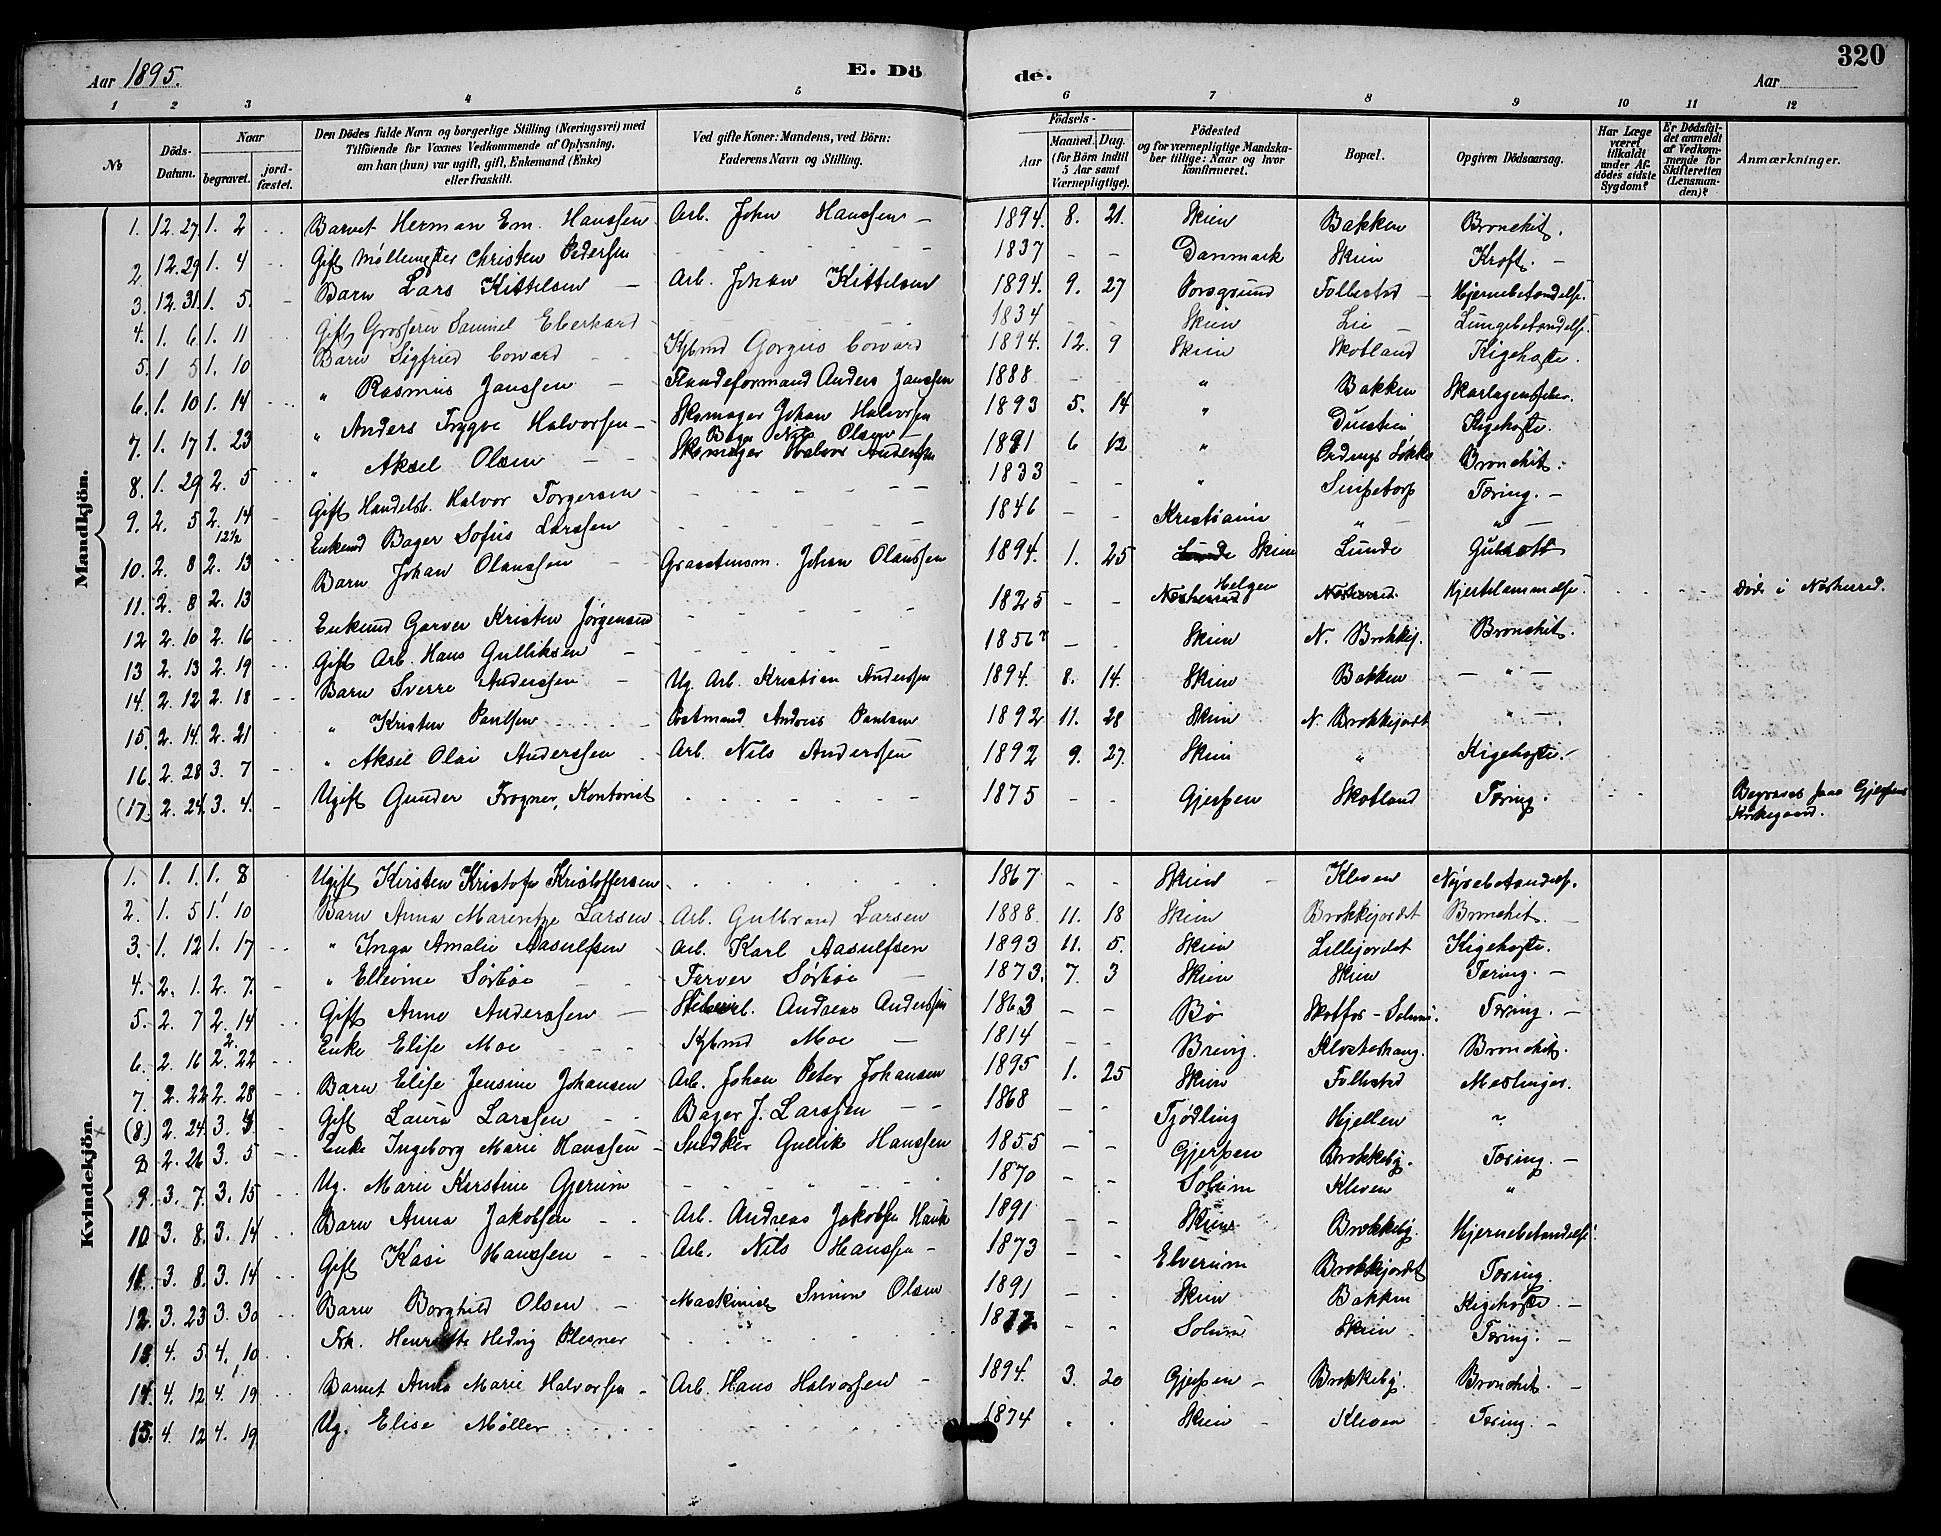 Aar 1895.
E. Dö
de.
Aar
320
1 2 3 4 5 6 7 8 9 10 11 12
No
Döds-Datum.
Naar
begravet.
jordfæstet.
Den Dödes fulde Navn og borgerlige Stilling (Næringsvei) med Tilföiende for Voxnes Vedkommende af Oplysning, om han (hun) var ugift, gift, Enkemand (Enke) eller fraskilt.
Ved gifte Koner: Mandens, ved Börn: Faderens Navn og Stilling.
Födsels-
Aar
Maaned. Dag. (for Börn indtil 5 Aar samt Værnepligtige).
Födested og for værnepligtige Mandskaber tillige: Naar og hvor konfirmeret.
Bopæl.
Opgiven Dödsaarsag.
Har Læge været tilkaldt under Afdödes sidste Sygdom?
Er Dödsfaldet anmeldt af Vedkommende for Skifteretten (Lensmanden)?
Anmærkninger.
Mandkjön.
1. 12. 27 1. 2 Barnet Herman Em. Hanssen Arb. John Hanssen 1894. 8. 21. Skien Bakken Bronchit.
2. 12. 29 1. 4 Gift Møllemester Christen Pedersen 1837 Danmark Skien Kræft.
3. 12. 31. 1. 5. Barn Lars Kittelsen Arb. Johan Kittelsen 1894. 9. 27 Porsgrund Follestad Hjernebetændelse.
4. 1. 6 1. 11 Gift Grosserer Samuel Eberhard 1834 Skien Lie Lungebetændelse.
5. 1 5 1. 10 Barn Sigfried Coward Kjbmd Gorgius Coward 1894. 12. 9 Skien Skotland Kigehoste.
6. 1. 10 1. 14 " Rasmus Janssen Flaadeformand Anders Janssen 1888 " Bakken Skarlagensfeber.
7. 1. 17 1. 23 " Anders Trygve Halvorsen Skomager Johan Halvorsen 1893 5. 14 " Duestien Kigehoste.
8. 1. 29 2. 5 " Aksel Olsen Bager Nils Olsen Skomager Halvor Anderssen 1891 6 12 " Løkke Bronchit.
9. 2. 5 2. 14 Gift Handelsb. Halvor Torgersen 1833 " Snipetorp Tæring.
10. 2. 8 2. 13 12½ Enkemd Bager Sofus Larssen 1846 Kristiania " "
11. 2. 8 2. 13 Barn Johan Olaussen Graastensm. Johan Olaussen 1894. 1. 25 Lunde Skien Lunde Gulsott
12 2. 10 2. 16 Enkemd Garver Kristen Jørgensen 1825 Nesherred Helgen Nesherred Hjertelammelse. Døde i Nesherred.
13 2. 13 2. 19 Gift Arb. Hans Gulliksen 1856? Skien N. Brekkej. Bronchit.
14. 2. 12 2. 18 Barn Sverre Anderssen Ug. Arb. Kristian Anderssen 1894. 8. 14. Skien Bakken "
15. 2. 14. 2. 21 " Kristen Paulsen Postmand Andreas Paulsen 1892 11. 28 Skien N. Brekkejordet "
16. 2. 28 3. 7 " Aksel Olai Anderssen Arb. Nils Anderssen 1892 9. 27. Skien " Kigehoste.
(17) 2. 24. 3. 4. Ugift Gunder Frogner, Kontorist 1875 Gjerpen Skotland Tæring. Begravet paa Gjerpens Kirkegaard.
Kvindekjön.
1. 1. 1. 1. 8 Ugift Kirsten Kristofa Kristoffersen 1867 Skien Kleven Nyrebetændelse.
2. 1. 5 1. 10 Barn Anna Marentze Larsen Arb. Gulbrand Larsen 1888 11. 18 Skien Brekkejordet Bronchit.
3. 1. 12 1. 17 " Inga Amalie Aasulfsen Arb. Karl Aasulfsen 1893 11. 5. Skien Lillejordet Kigehoste.
4. 2. 1. 2. 7. " Ellevine Sørbøe Farver Sørbøe 1873. 7. 3 Skien Skien Tæring.
5. 2. 7 2. 14 Gift Anne Anderssen Andreas Anderssen 1863 Bø Skotfos - Solum. Tæring.
6. 2. 16 2. 22 Enke Elise Moe Kjbmd Moe 1814 Brevig. Klosterhaug. Bronchit.
7. 2. 22 2. 28 Barn Elise Jensine Johansen Arb. Johan Peter Johansen 1895 1. 25 Skien Follestad Meslinger.
(8.) 2. 24. 3. 4 Gift Laura Larssen Bager J. Larssen 1868 Tjødling Hjellen "
8 2. 26 3. 5 Enke Ingeborg Marie Hanssen Snedker Gullik Hanssen 1855 Gjerpen Brekkebg. Tæring.
9. 3. 7. 3. 15 Ug. Marie Kirstine Gjerum 1870 Solum Kleven "
10 3. 8. 3. 14 Barn Anna Jakobsen Arb. Andreas Jakobsen Hauk 1891 Skien Brekkebg. Hjernebetændelse.
11. 3. 8. 3. 14 Gift Kasi Hanssen Arb. Nils Hanssen 1873 Elverum Brekkejordet Tæring.
12. 3. 23 3. 30 Barn Borghild Olsen Maskinist Simon Olsen 1891 Skien Bakken Kigehoste.
13. 4. 5 4. 10 Frk. Henriette Hedvig Plesner Solum Skien Tæring.
14. 4. 12 4. 19 Barnet Anna Marie Halvorsen Arb. Hans Halvorsen 1894. 3. 20 Gjerpen Brekkebg. Bronchit.
15. 4. 12 4. 19 Ug. Elise Møller 1874 Skien Kleven Tæring.